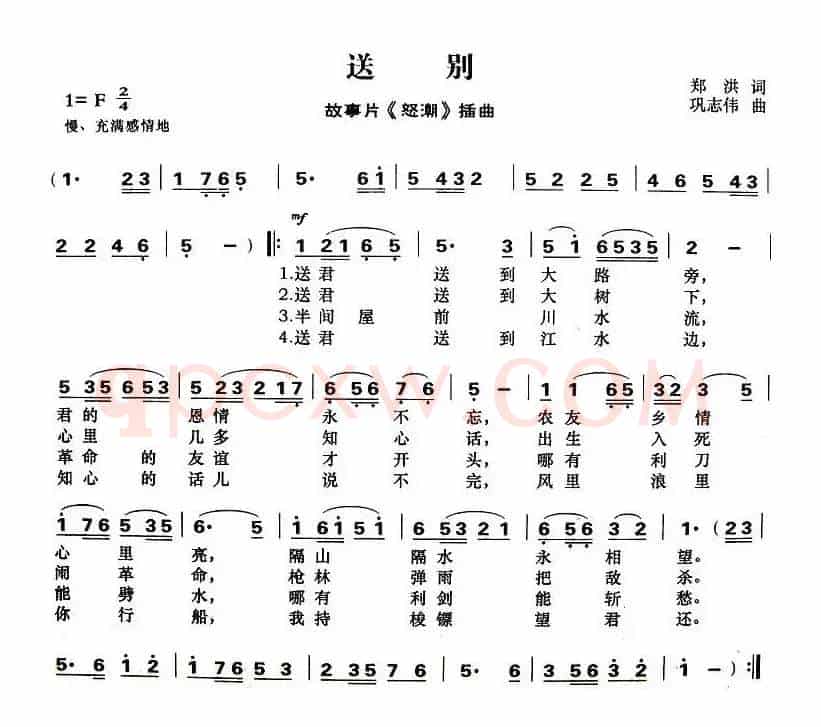 送 别
1= F 2/4
郑 洪 词
故事片《怒潮》插曲
巩志伟 曲
慢、充满感情地
(1· 23 | 1 765 | 5· 61 | 5 432 | 5 2 2 5 | 4 6 5 43 |
mf
2 2 4 6 | 5 — ) ‖: 1 21 6 5 | 5· 3 | 5 1 6535 | 2 — |
1.送君 送到大路旁,
2.送君 送到大树下,
3.半间屋 前 川水流,
4.送君 送到江水边,
5 35 6 53 | 5 23 2 17 | 6 56 7 6 | 5 — | 1 1 65 | 32 3 5 |
君的 恩情 永不忘,农友乡情
心里 几多 知心话,出生入死
革命的友谊 才开头,哪有利刀
知心的话儿 说不完,风里浪里
1 76 5 35 | 6· 5 | 1 61 5 1 | 6 53 2 | 6 56 3 2 | 1· (23 |
心里亮,隔山隔水永相望。
闹革命,枪林弹雨把敌杀。
能劈水,哪有利剑能斩愁。
你行船,我持梭镖望君还。
5· 6 1 2 | 1 76 5 3 | 2 35 2 17 | 6· 5 6 | 1 2 3 2 | 1 — ) :‖
qpcxw.COM